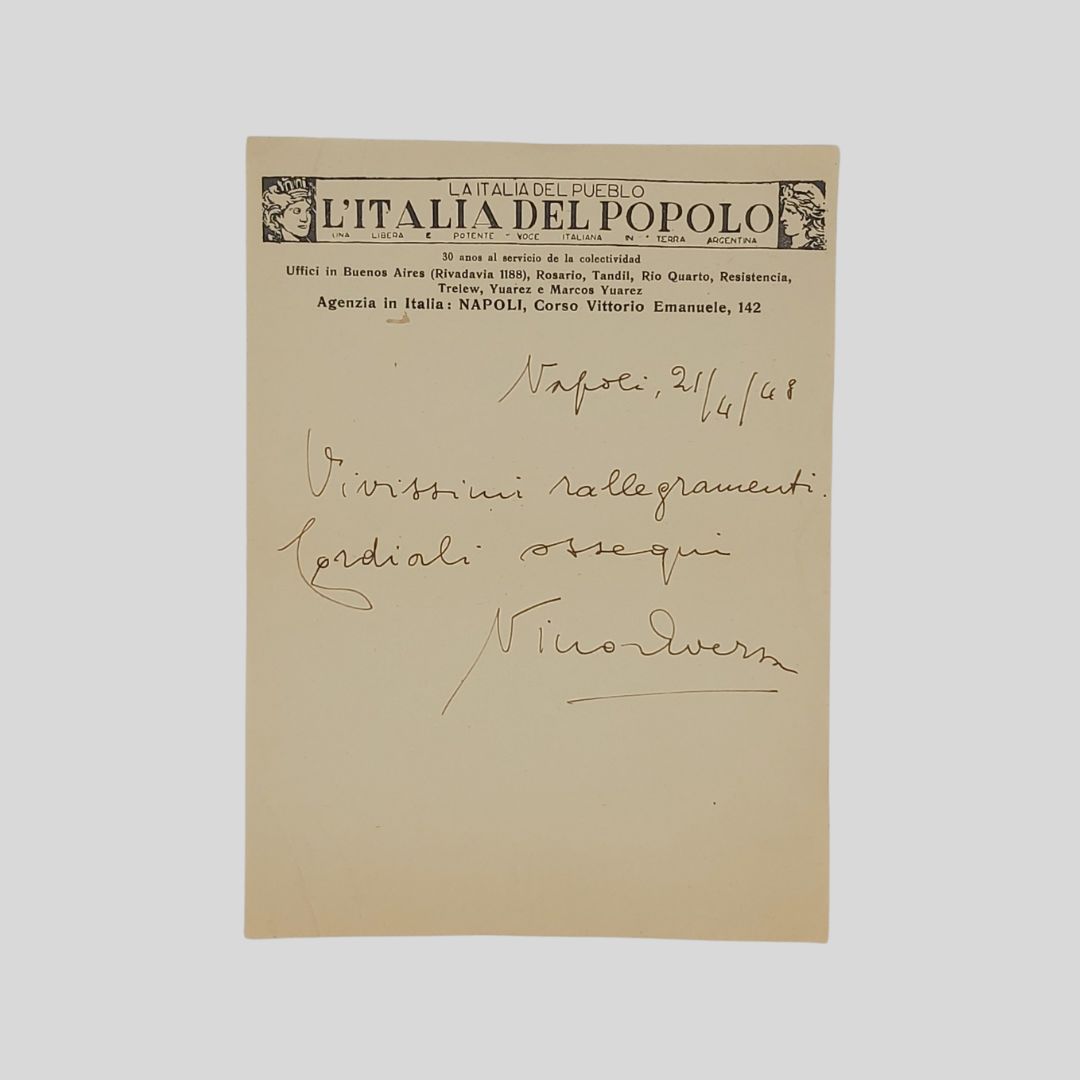 LA ITALIA DEL PUEBLO
L'ITALIA DEL POPOLO
UNA LIBERA E POTENTE VOCE ITALIANA IN TERRA ARGENTINA
30 anos al servicio de la colectividad
Uffici in Buenos Aires (Rivadavia 1188), Rosario, Tandil, Rio Quarto, Resistencia,
Trelew, Yuarez e Marcos Yuarez
Agenzia in Italia: NAPOLI, Corso Vittorio Emanuele, 142
Napoli, 21/4/48
Vivissimi rallegramenti.
Cordiali ossequi
Nino Aversa